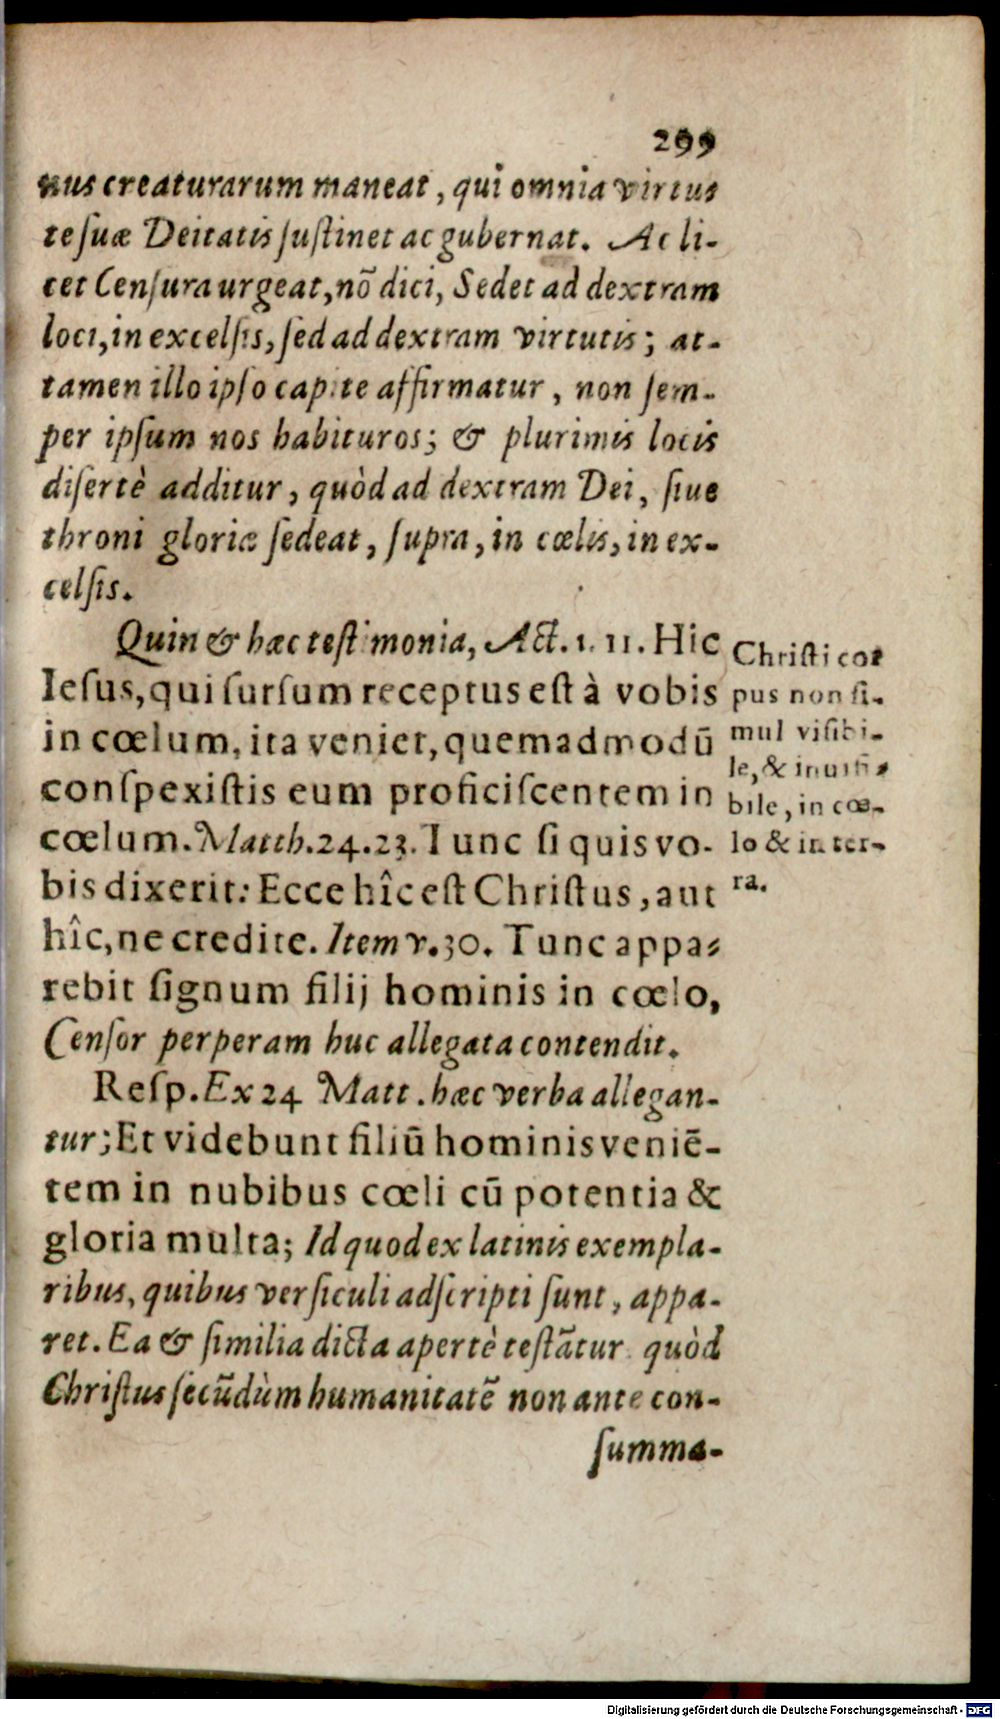 299
nus creaturarum maneat, qui omnia virtus
te ſuæ Deitatis ſuſtinet ac gubernat. Ac li-
cet Cenſura urgeat, nō dici, Sedet ad dextram
loci, in excelſis, ſed ad dextram virtutis; at-
tamen illo ipſo capite affirmatur, non ſem-
per ipſum nos habituros; & plurimis locis
diſertè additur, quòd ad dextram Dei, ſive
throni gloriæ ſedeat, ſupra, in cœlis, in ex-
celſis.
Quin & hæc teſtimonia, Act. 1. 11. Hic
Ieſus, qui ſurſum receptus eſt à vobis
in cœlum, ita veniet, quemadmodū
conſpexiſtis eum proficiſcentem in
cœlum. Matth. 24. 23. Tunc ſi quis vo-
bis dixerit: Ecce hîc eſt Chriſtus, aut
hîc, ne credite. Item v. 30. Tunc appa-
rebit ſignum filij hominis in cœlo,
Cenſor perperam huc allegata contendit.
Chriſti cor
pus non ſi-
mul viſibi-
le, & inuiſi-
bile, in cœ-
lo & in ter-
ra.
Reſp. Ex 24 Matt. hæc verba allegan-
tur; Et videbunt filiū hominis veniē-
tem in nubibus cœli cū potentia &
gloria multa; Id quod ex latinis exempla-
ribus, quibus verſiculi adſcripti ſunt, appa-
ret. Ea & ſimilia dicta apertè teſtātur quòd
Chriſtus ſecūdùm humanitatē non ante con-
ſumma-
Digitalisierung gefördert durch die Deutsche Forschungsgemeinschaft - DFG